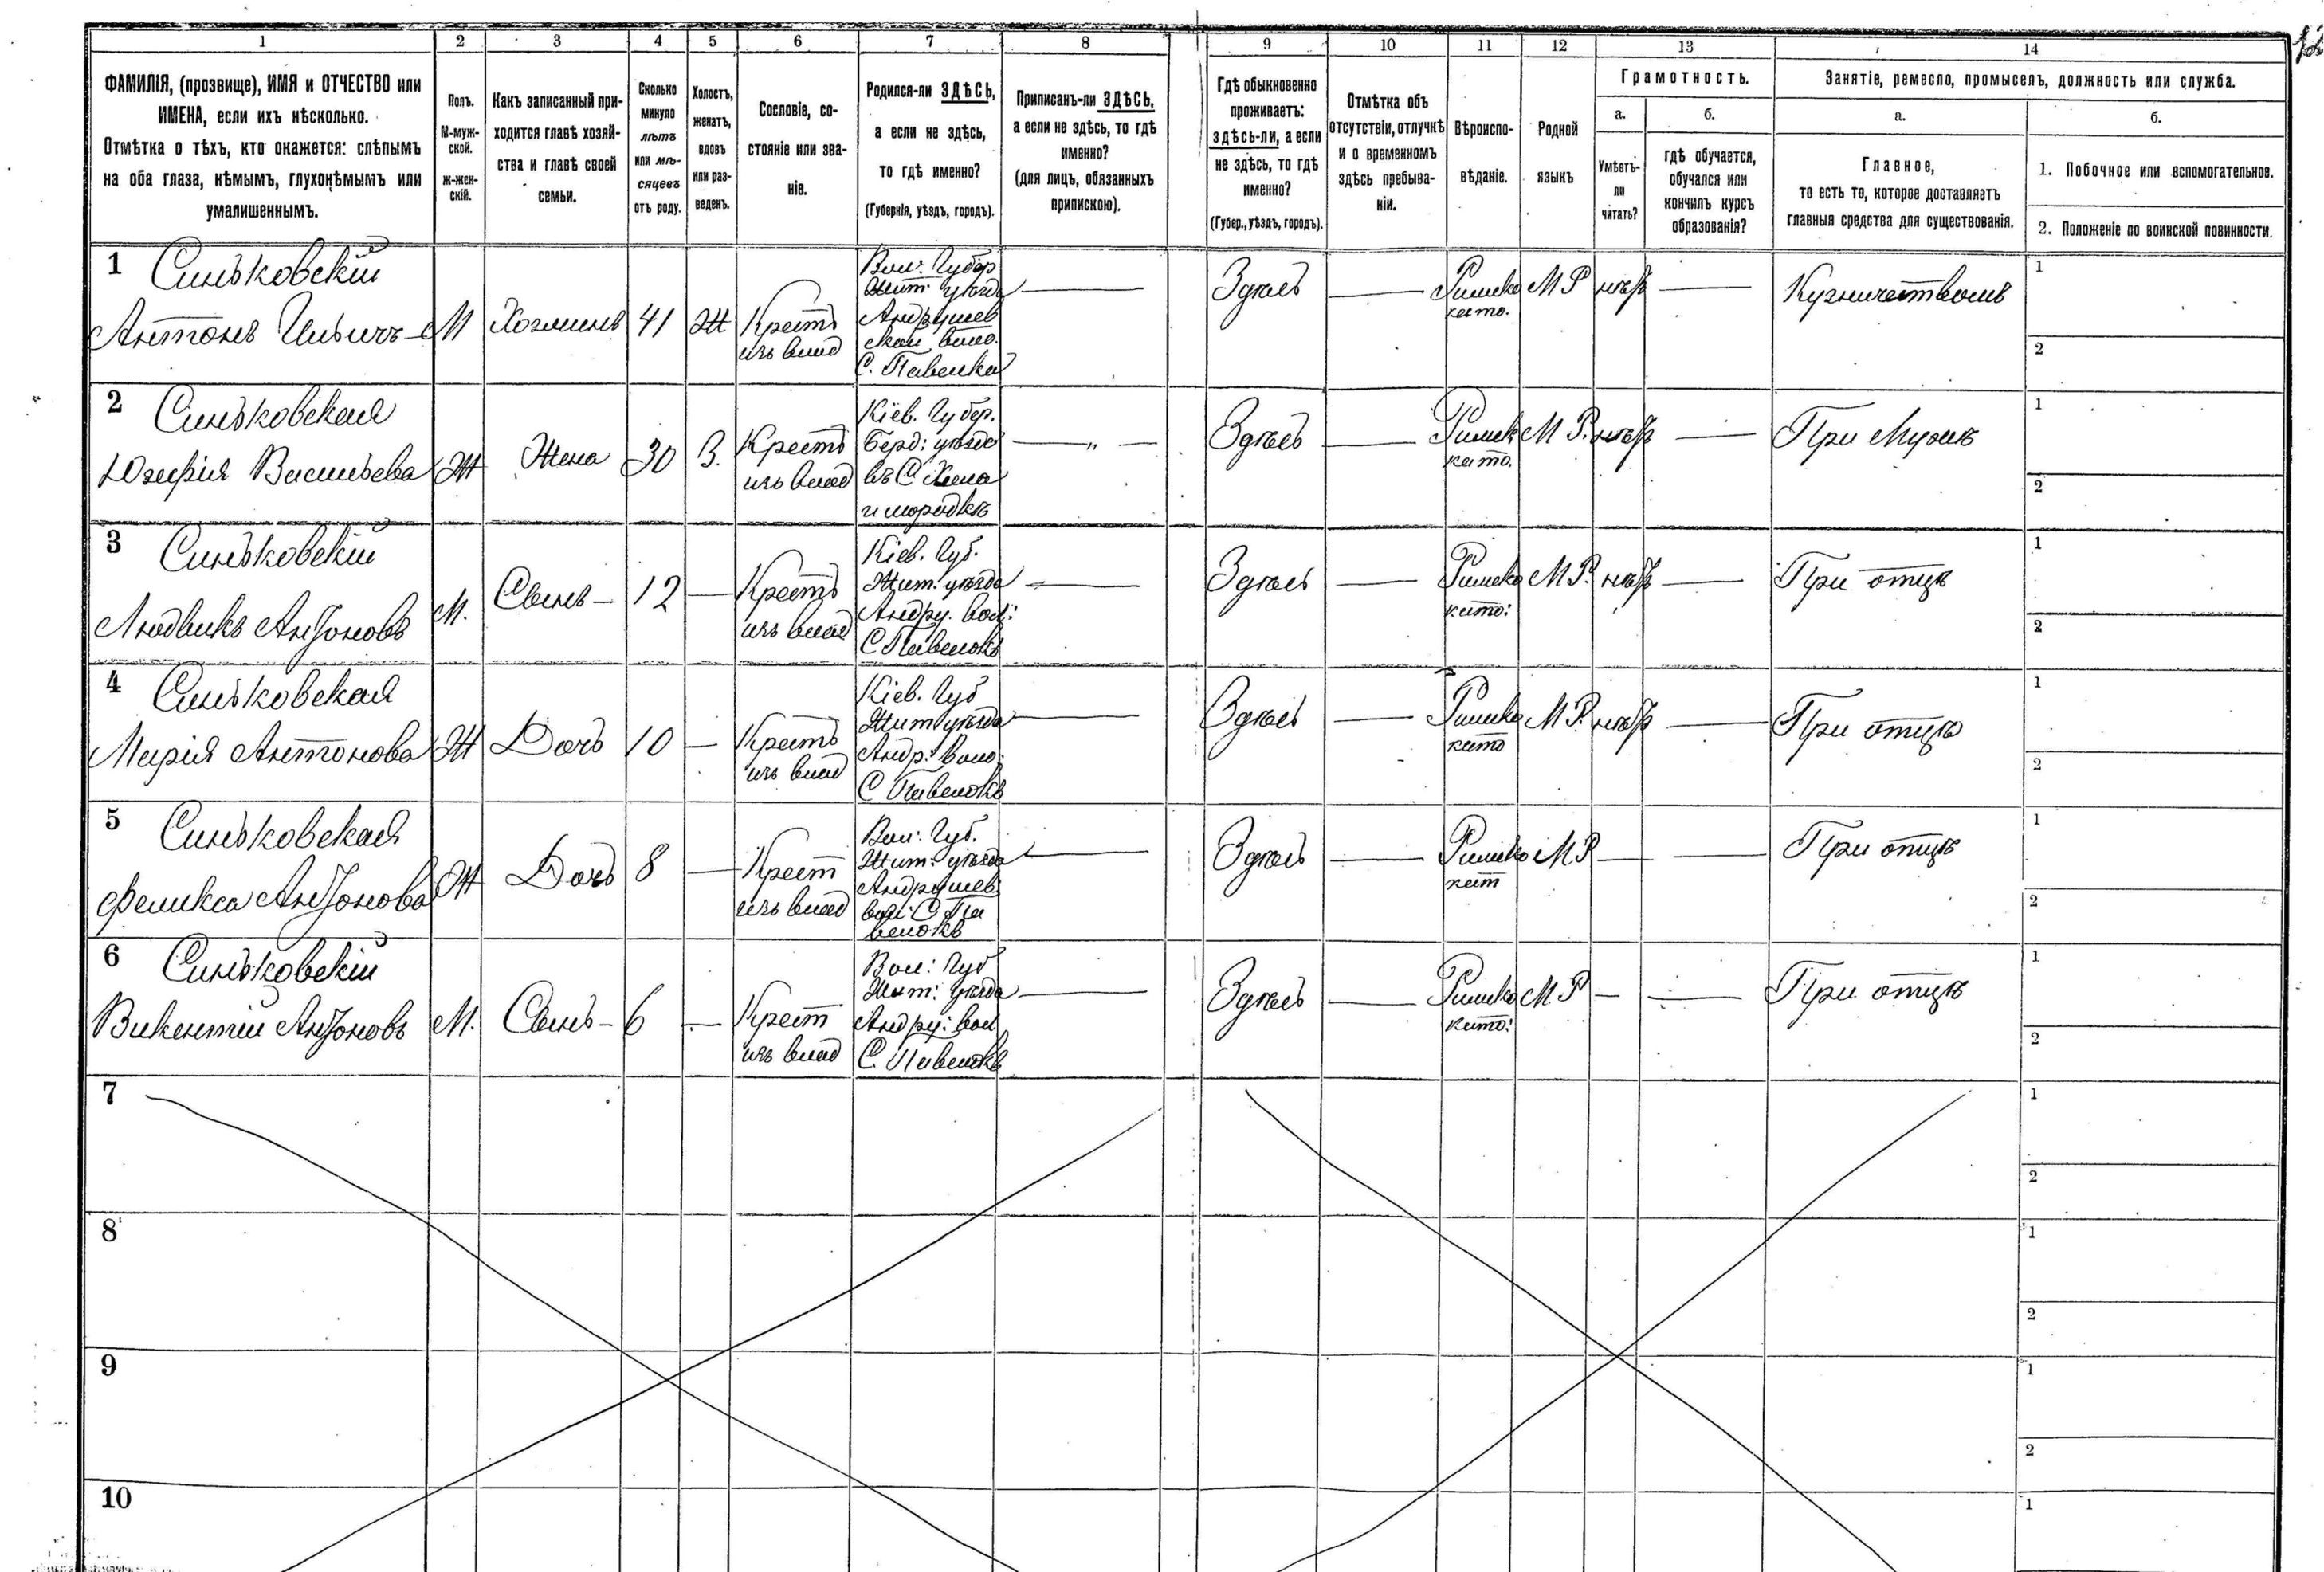 1 2 3 4 5 6 7 8 9 10 11 12 13 14
ФАМИЛІЯ, (прозвище), ИМЯ и ОТЧЕСТВО или
ИМЕНА, если ихъ нѣсколько.
Отмѣтка о тѣхъ, кто окажется: слѣпымъ
на оба глаза, нѣмымъ, глухонѣмымъ или
умалишеннымъ.
Полъ.
М-муж-
ской.
Ж-жен-
скій.
Какъ записанный при-
ходится главѣ хозяй-
ства и главѣ своей
семьи.
Сколько
минуло
лѣтъ
или мѣ-
сяцевъ
отъ роду.
Холостъ,
женатъ,
вдовъ
или раз-
веденъ.
Сословіе, со-
стояніе или зва-
ніе.
Родился-ли ЗДѢСЬ,
а если не здѣсь,
то гдѣ именно?
(Губернія, уѣздъ, городъ).
Приписанъ-ли ЗДѢСЬ,
а если не здѣсь, то гдѣ
именно?
(для лицъ, обязанныхъ
припискою).
Гдѣ обыкновенно
проживаетъ:
здѣсь-ли, а если
не здѣсь, то гдѣ
именно?
(Губер., уѣздъ, городъ).
Отмѣтка объ
отсутствіи, отлучкѣ
и о временномъ
здѣсь пребыва-
ніи.
Вѣроиспо-
вѣданіе.
Родной
языкъ
Грамотность.
а.
Умѣетъ-
ли
читать?
б.
гдѣ обучается,
обучался или
кончилъ курсъ
образованія?
Занятіе, ремесло, промыселъ, должность или служба.
а.
Главное,
то есть то, которое доставляетъ
главныя средства для существованія.
б.
1. Побочное или вспомогательное.
2. Положеніе по воинской повинности.
1 Синьковскій
Антонъ Ильичъ
М
Хозяинъ
41
Ж
Крестъ
изъ влад
Вол: Губер
Жит: уѣзда
Андрушев
ской воло.
С. Павелка
—
Здѣсь
—
Римско
като.
М Р
нѣтъ
—
Кузничествомъ
1
2
2 Синьковская
Юзефія Васильева
Ж
Жена
30
З.
Крестъ
изъ влад
Кіев. Губер.
Берд: уѣзда
въ С
городкѣ
— „ —
Здѣсь
—
Римск
като.
М Р.
нѣтъ
—
При Мужѣ
1
2
3 Синьковскій
Людвикъ Антоновъ
М.
Сынъ
12
—
Крестъ
изъ влад
Кіев. Губ.
Жит. уѣзда
Андру. вол:
С Павелокъ
—
Здѣсь
—
Римско
като:
М Р.
нѣтъ
—
При отцѣ
1
2
4 Синьковская
Марія Антонова
Ж
Дочь
10
—
Крестъ
изъ влад
Кіев. Губ
Жит уѣзда
Андр: воло:
С Павелокъ
—
Здѣсь
—
Римско
като
М Р.
нѣтъ
—
При отцѣ
1
2
5 Синьковская
Феликса Антонова
Ж
Дочь
8
—
Крест
изъ влад
Вол: Губ.
Жит: уѣзда
Андрушев
вол: С Па
велокъ
—
Здѣсь
—
Римско
кат
М Р
—
—
При отцѣ
1
2
6 Синьковскій
Викентій Антоновъ
М.
Сынъ
6
—
Крест
изъ влад
Вол: Губ
Жит: уѣзда
Андру: вол
С. Павелокъ
—
Здѣсь
—
Римско
като:
М Р
—
—
При отцѣ
1
2
7
1
2
8
1
2
9
1
2
10
1